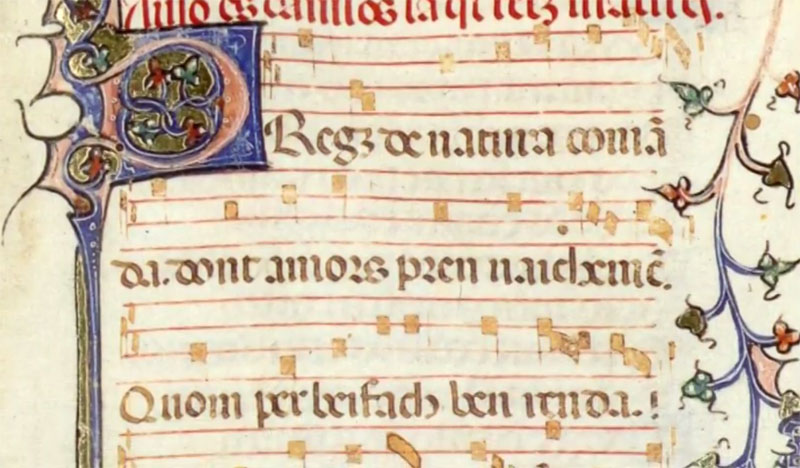 DRegz de natura comā
da. dont amors pren naichxmē.
Quom per beifach ben renda.